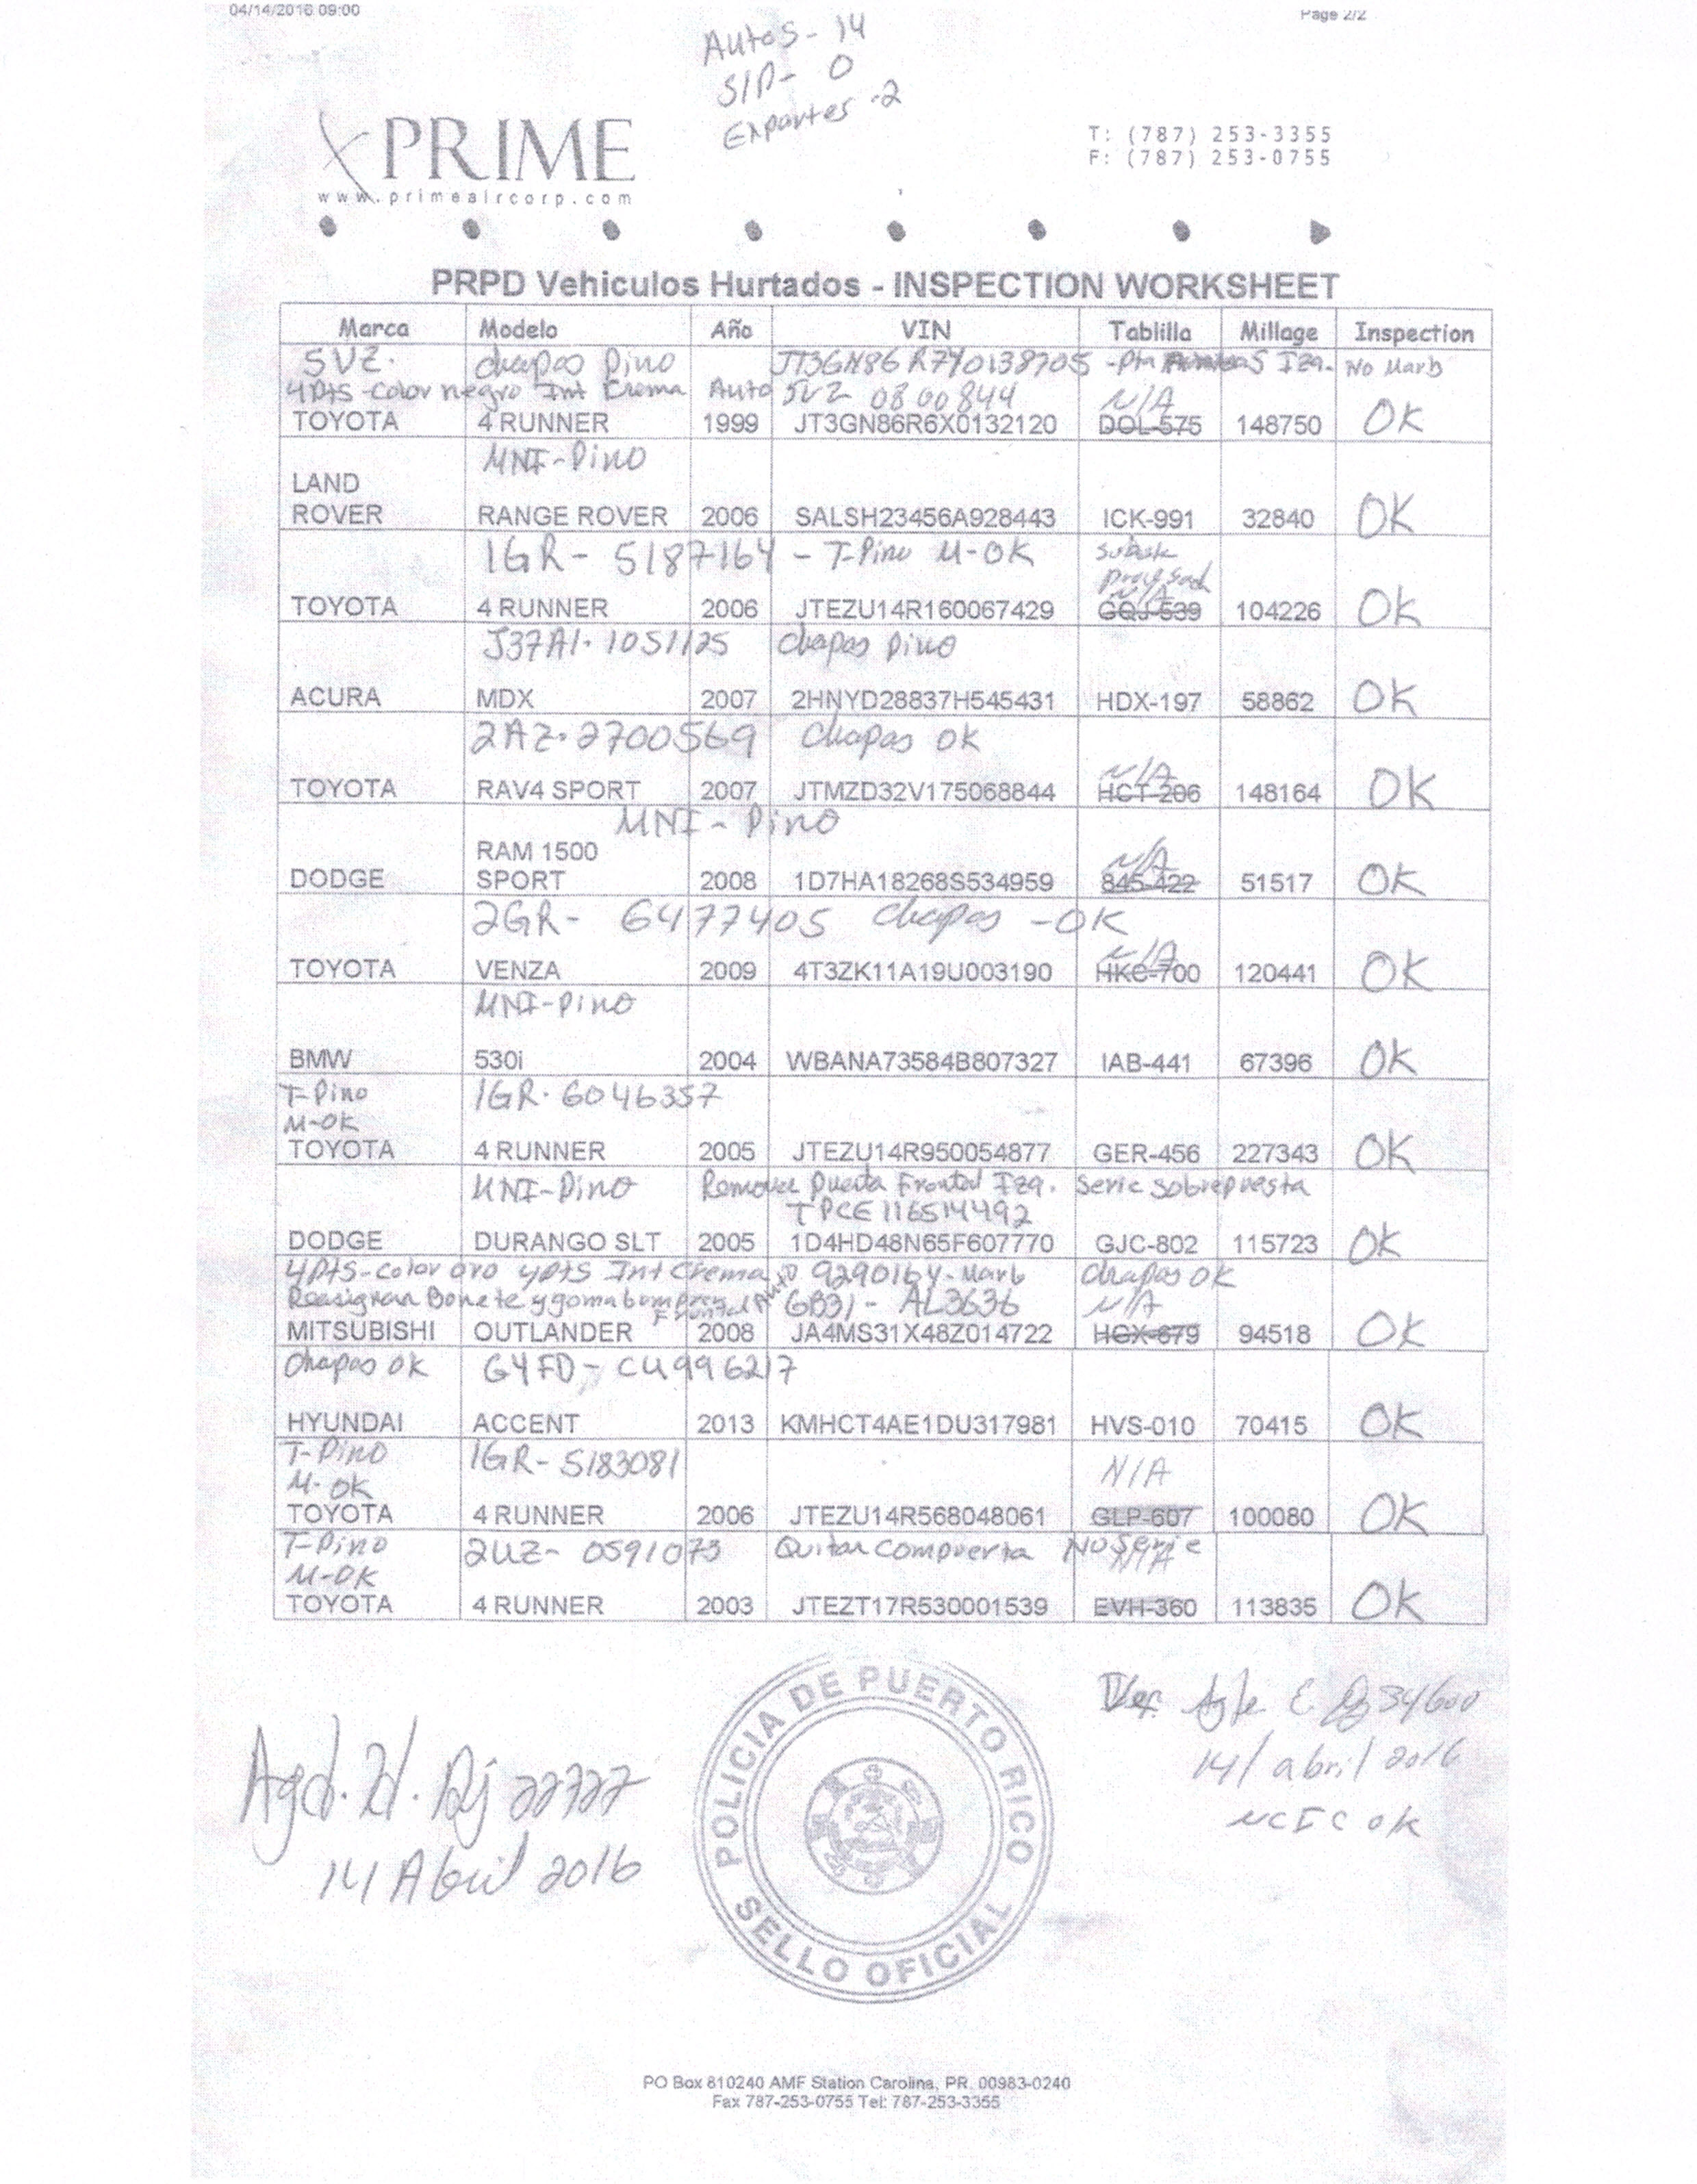 04/14/2016 09:00 Page 2/2
Autos - 14
S/P - 0
Expartes - 2
PRIME
www.primeaircorp.com
T: (787) 253-3355
F: (787) 253-0755
PRPD Vehiculos Hurtados - INSPECTION WORKSHEET
Marca Modelo Año VIN Tablilla Millage Inspection
5VZ. chapas Pino JT3GN86R7Y0138705 - Pta Izq. No Marb
4Pts - Color negro Int Crema Auto 5VZ 0800844 N/A
TOYOTA 4 RUNNER 1999 JT3GN86R6X0132120 DOL-575 148750 OK
MNI-Pino
LAND
ROVER RANGE ROVER 2006 SALSH23456A928443 ICK-991 32840 OK
1GR - 5187164 - T-Pino M-OK
N/A
TOYOTA 4 RUNNER 2006 JTEZU14R160067429 GQJ-539 104226 OK
J37A1. 1051125 Chapas Pino
ACURA MDX 2007 2HNYD28837H545431 HDX-197 58862 OK
2AZ. 2700569 Chapas OK
N/A
TOYOTA RAV4 SPORT 2007 JTMZD32V175068844 HCT-206 148164 OK
MNI - Pino
RAM 1500 N/A
DODGE SPORT 2008 1D7HA18268S534959 845-422 51517 OK
2GR - 6477405 Chapas - OK
N/A
TOYOTA VENZA 2009 4T3ZK11A19U003190 HKC-700 120441 OK
MNI-Pino
BMW 530i 2004 WBANA73584B807327 IAB-441 67396 OK
T-Pino 1GR. 6046357
M-OK
TOYOTA 4 RUNNER 2005 JTEZU14R950054877 GER-456 227343 OK
MNI-Pino Remover Puerta Frontal Izq. Serie Sobrepuesta
TPCE116514492
DODGE DURANGO SLT 2005 1D4HD48N65F607770 GJC-802 115723 OK
4Pts-Color oro 4pts Int Crema Auto 9290164-Marb Chapas OK
Reasignan Bonete y goma bumper Frontal 6B31 - AL3636 N/A
MITSUBISHI OUTLANDER 2008 JA4MS31X48Z014722 HGX-679 94518 OK
Chapas OK G4FD - CU996217
HYUNDAI ACCENT 2013 KMHCT4AE1DU317981 HVS-010 70415 OK
T-Pino 1GR - 5183081
M-OK N/A
TOYOTA 4 RUNNER 2006 JTEZU14R568048061 GLP-607 100080 OK
T-Pino 2UZ - 0591073 Quitar Compuerta No Serie
M-OK N/A
TOYOTA 4 RUNNER 2003 JTEZT17R530001539 EVH-360 113835 OK
POLICIA DE PUERTO RICO
SELLO OFICIAL
Agte E 34600
14/abril 2016
NCIC OK
Agd. H. 22727
14 Abril 2016
PO Box 810240 AMF Station Carolina, PR. 00983-0240
Fax 787-253-0755 Tel: 787-253-3355